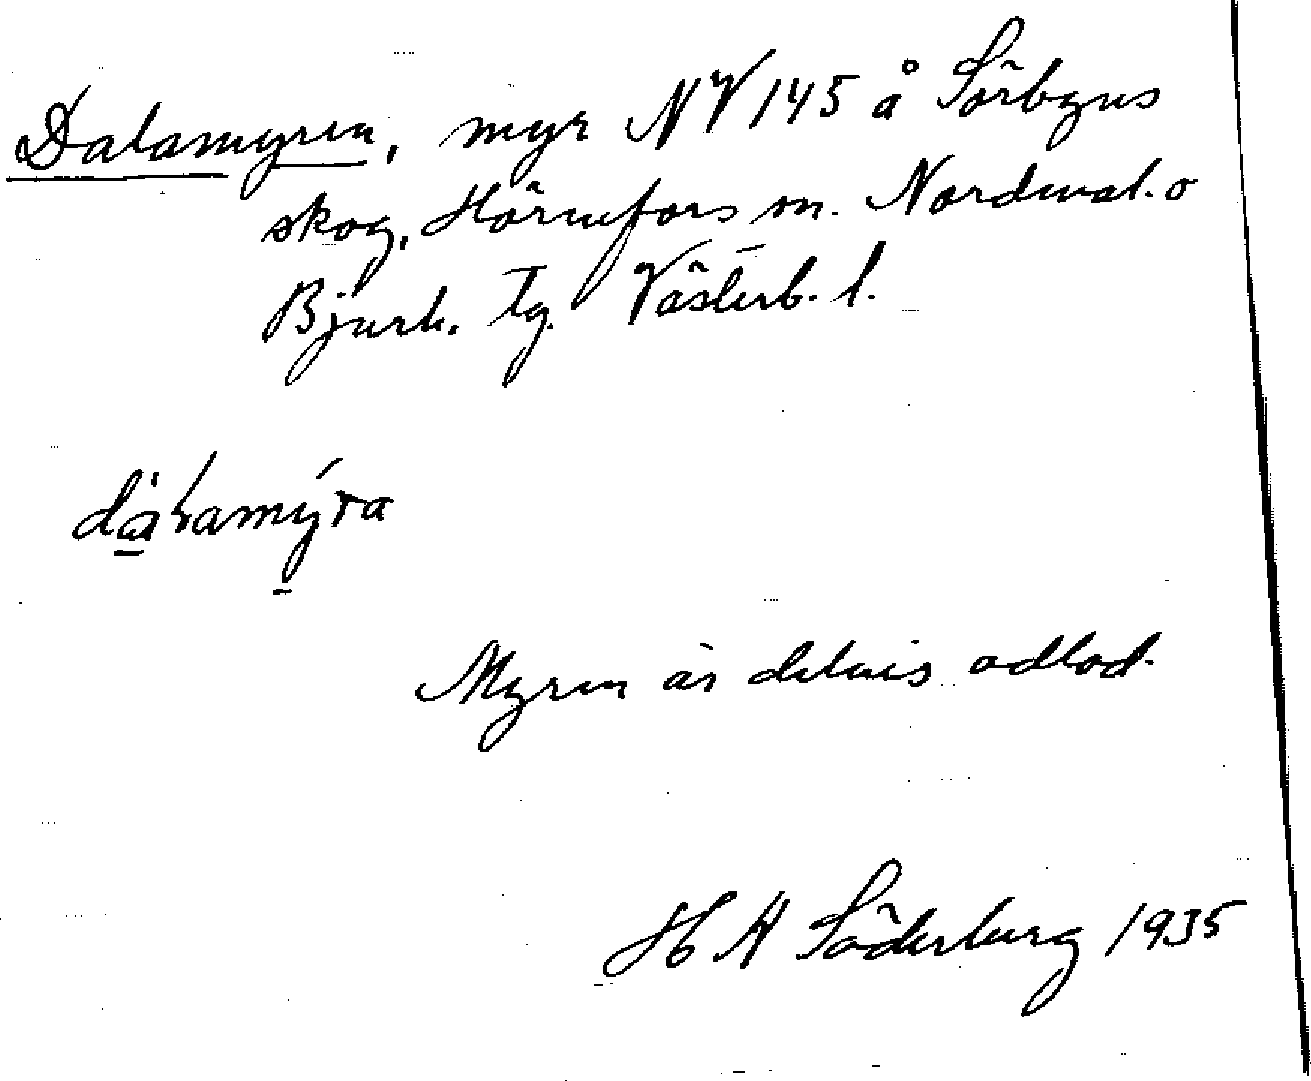 Dalamyren, myr NV 145 å Sörbyns
skog, Hörnefors sn. Nordmal. o
Bjurh. tg. Västerb. l.
Myren är delvis odlad.
H A Söderberg 1935